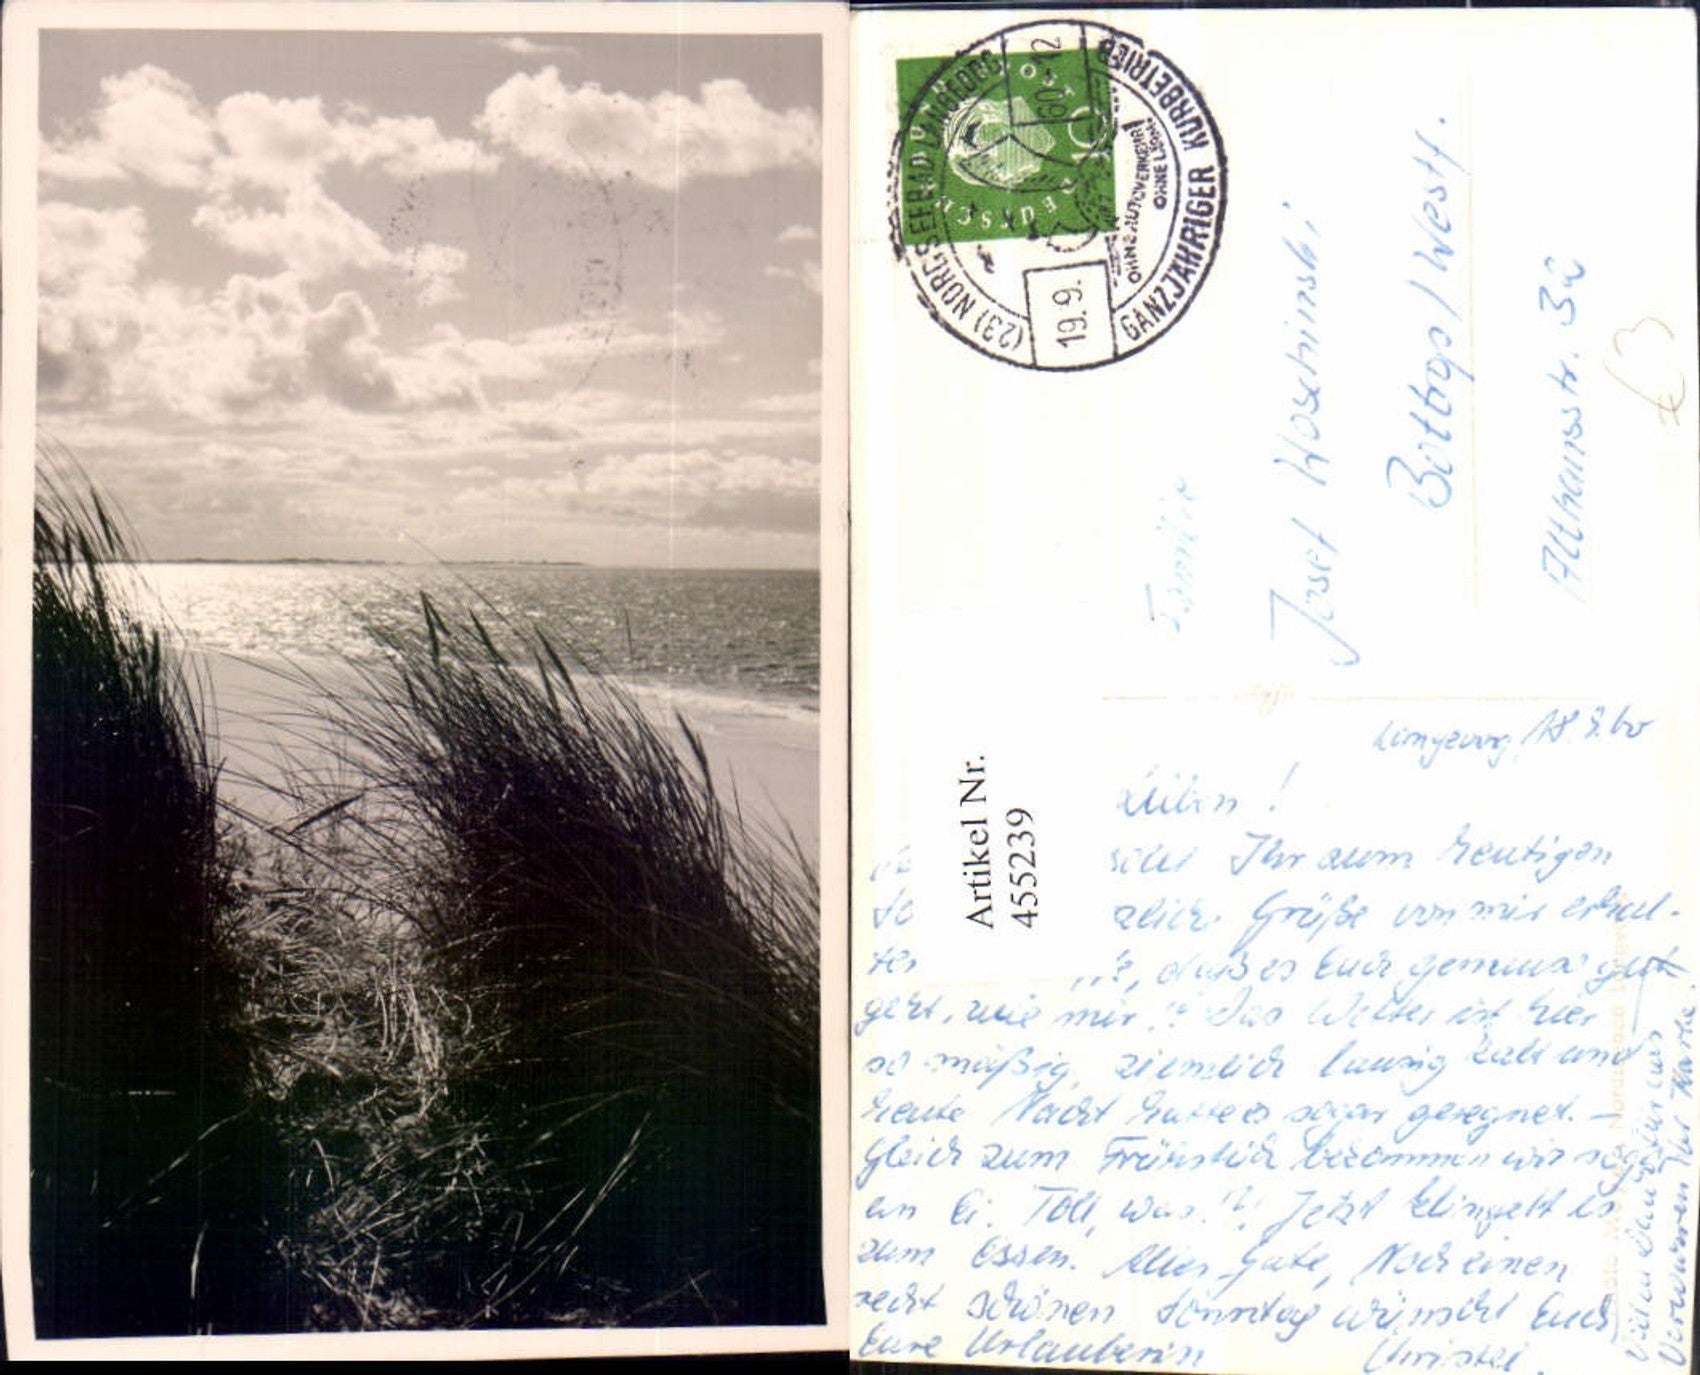 (23) NORDSEEBAD LANGEOOG
19.9.
60.-12
GANZJÄHRIGER KURBETRIEB
OHNE AUTOVERKEHR
OHNE LÄRM
10
Familie
Josef
Bottrop / Westf.
Artikel Nr.
4555239
Langeoog, 18.9.60
Lieben!
Ihr zum heutigen
Grüße von mir erhal-
ten, daß es Euch genauso gut
geht, wie mir!? Das Wetter ist hier
so mäßig, ziemlich lausig kalt und
heute Nacht hatte es sogar geregnet. –
Gleich zum Frühstück bekommen wir sogar
ein Ei. Toll, was!? Jetzt klingelt es
zum Essen. Alles Gute, Noch einen
recht schönen Sonntag wünscht Euch
Eure Urlauberin Christel.
Vielen Dank für das
Verwahren der Karte!